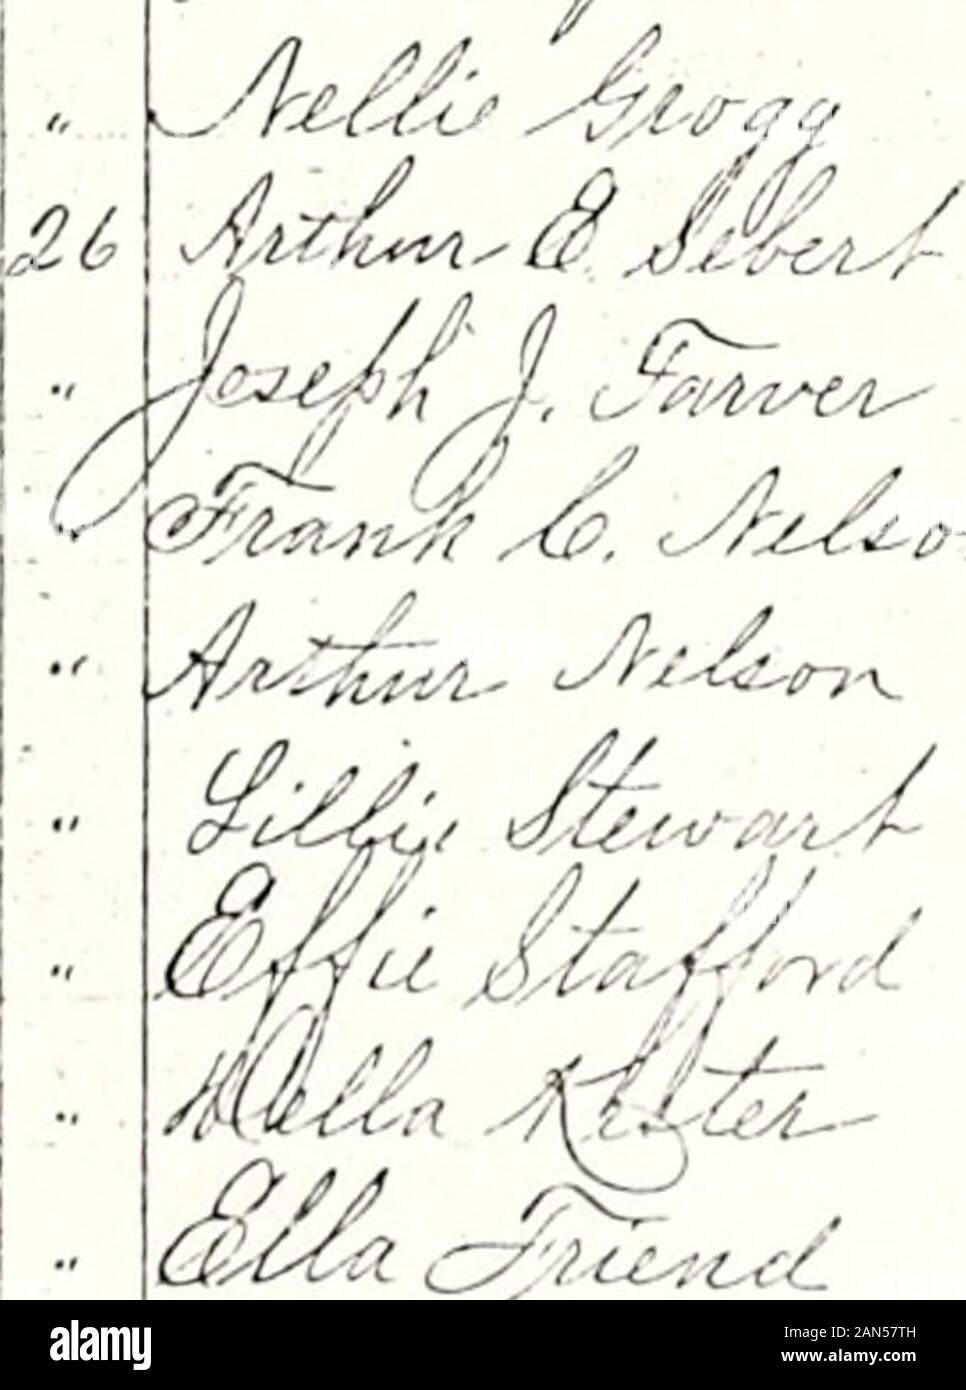 " Nellie Grogg
26 Arthur E. Sebert
" Joseph J. Farver
" Frank C. Nelso
" Arthur Nelson
" Lillie Stewart
" Effie Stafford
" Della Kester
" Ella Friend
alamy
Image ID: 2AN57TH
www.alamy.com